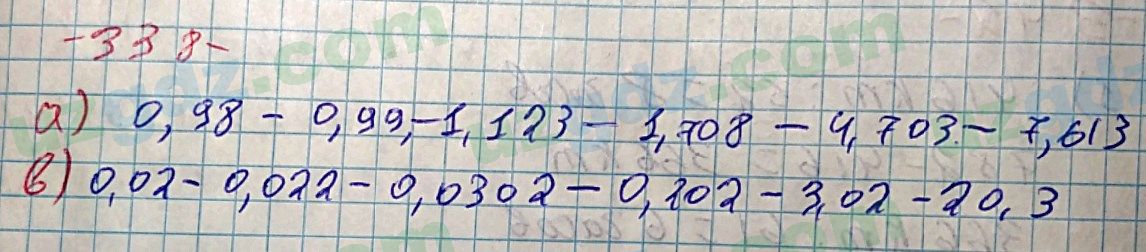 -338-
а) 0,98 - 0,99, - 1,123 - 1,708 - 4,703 - 7,613
в) 0,02 - 0,022 - 0,0302 - 0,202 - 3,02 - 20,3